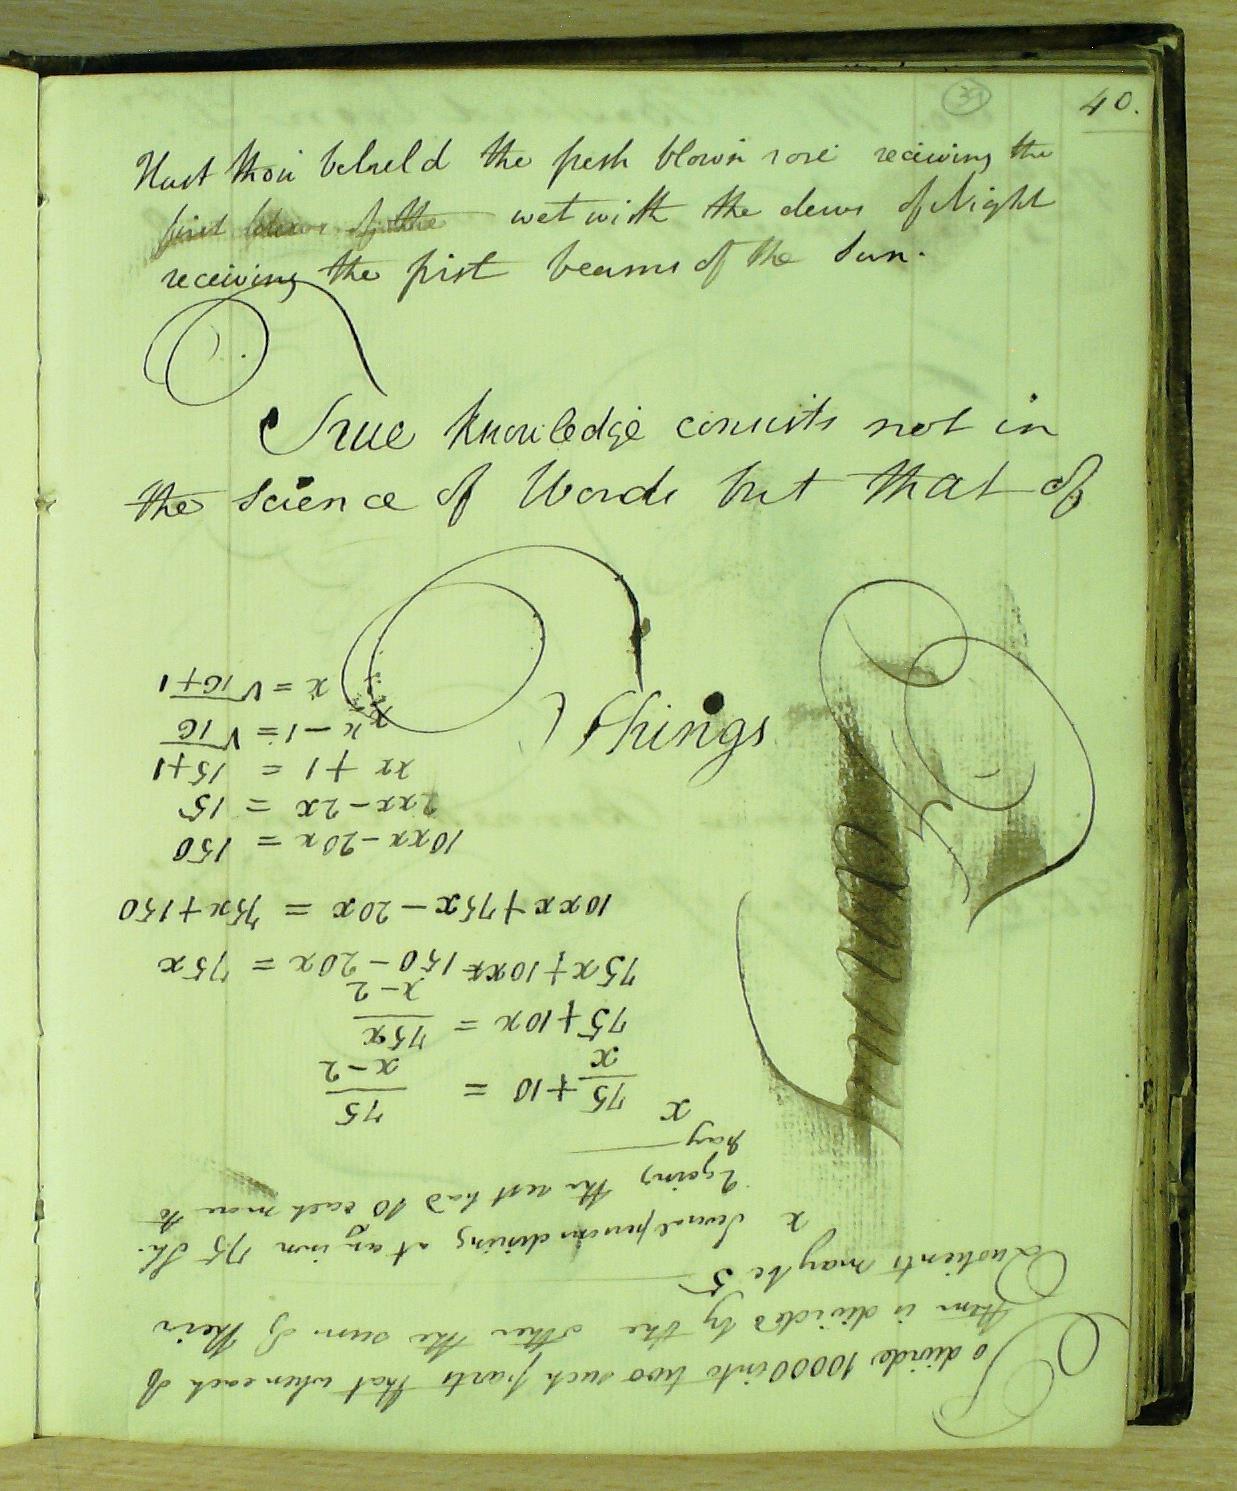 39
40.
Hast thou beheld the fresh blown rose receiving the
first of the wet with the dews of Night
receiving the first beams of the Sun.
True knowledge consists not in
the Science of Words but that of
Things
To divide 10000 into two such parts that when each of
them is divided by the other the sum of their
Quotients may be 5
x Several persons dining at an inn 75 Sh.
2 going the rest had 10 each more to
pay
x
75/x + 10 = 75/x-2
75 + 10x = 75x/x-2
75x + 10xx - 150 - 20x = 75x
10xx + 75x - 20x = 75x + 150
10xx - 20x = 150
2xx - 2x = 15
xx + 1 = 15+1
x - 1 = √16
x = √16+1